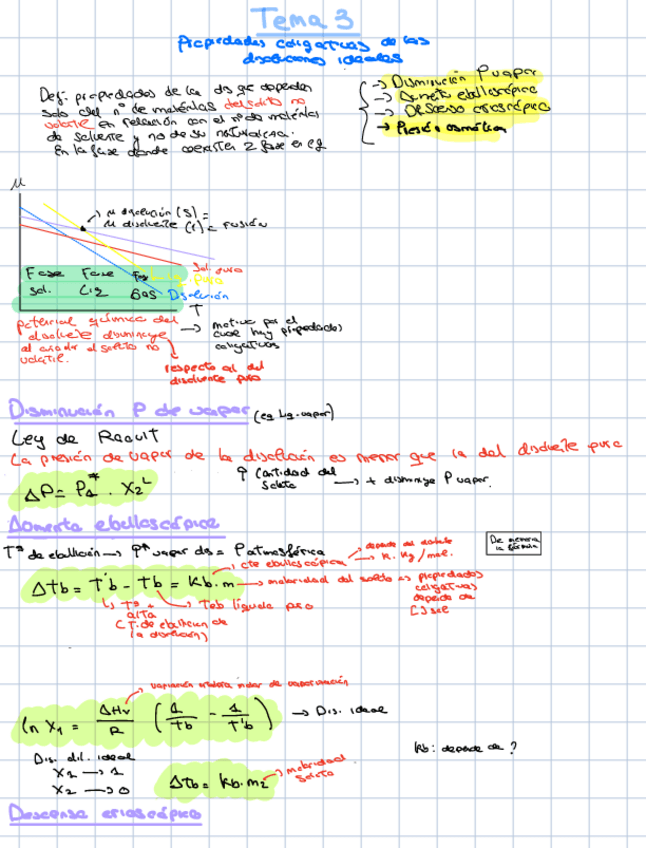 Tema 3
Propiedades coligativas de las
disoluciones ideales
Def: propiedades de las ds qe dependen
solo del nº de moléculas del soluto no
volatil en relación con el nº de moléculas
de solvente y no de su naturaleza.
En la fase donde coexisten 2 fase en eq
→ Disminución P vapor
→ Aumento ebulloscópico
→ Descenso crioscópico
→ Presión osmótica
μ
μ disolución (s) =
μ disolvente (l) = Fusión
Sol. puro
Liq. Puro
Disolución
Fase Fase Fas
Sol. Liq Gas
T
potencial químico del
disolvente disminuye
al añadir el soluto no
volatil.
→ motivo por el
cual hay propiedades
coligativas
respecto al del
disolvente puro
Disminución P de vapor (eq liq-vapor)
Ley de Raoult
La presión de vapor de la disolución es menor que la del disolvente puro
ΔP = P₁* · X₂ᴸ
↑ Cantidad del
soluto → + disminuye P vapor.
Aumento ebulloscópico
Tª de ebullición → Pª vapor ds = P atmosférica
De memoria
la fórmula
cte ebulloscópica
→ K. Kg / mol.
Δtb = T'b - Tb = Kb.m → molalidad del soluto → propiedades
coligativas
depende de
[] sol
↳ Tª +
alta
(T. de ebullición de
la disolución)
Teb líquido puro
variación entalpia molar de vaporización
ln X₁ = ΔHv / R (1 / Tb - 1 / T'b) → Dis. ideal
Dis. dil. ideal
X₁ → 1
X₂ → 0
ΔTb = Kb.m₂ → molalidad
soluto
Kb: depende de ?
Descenso crioscópico